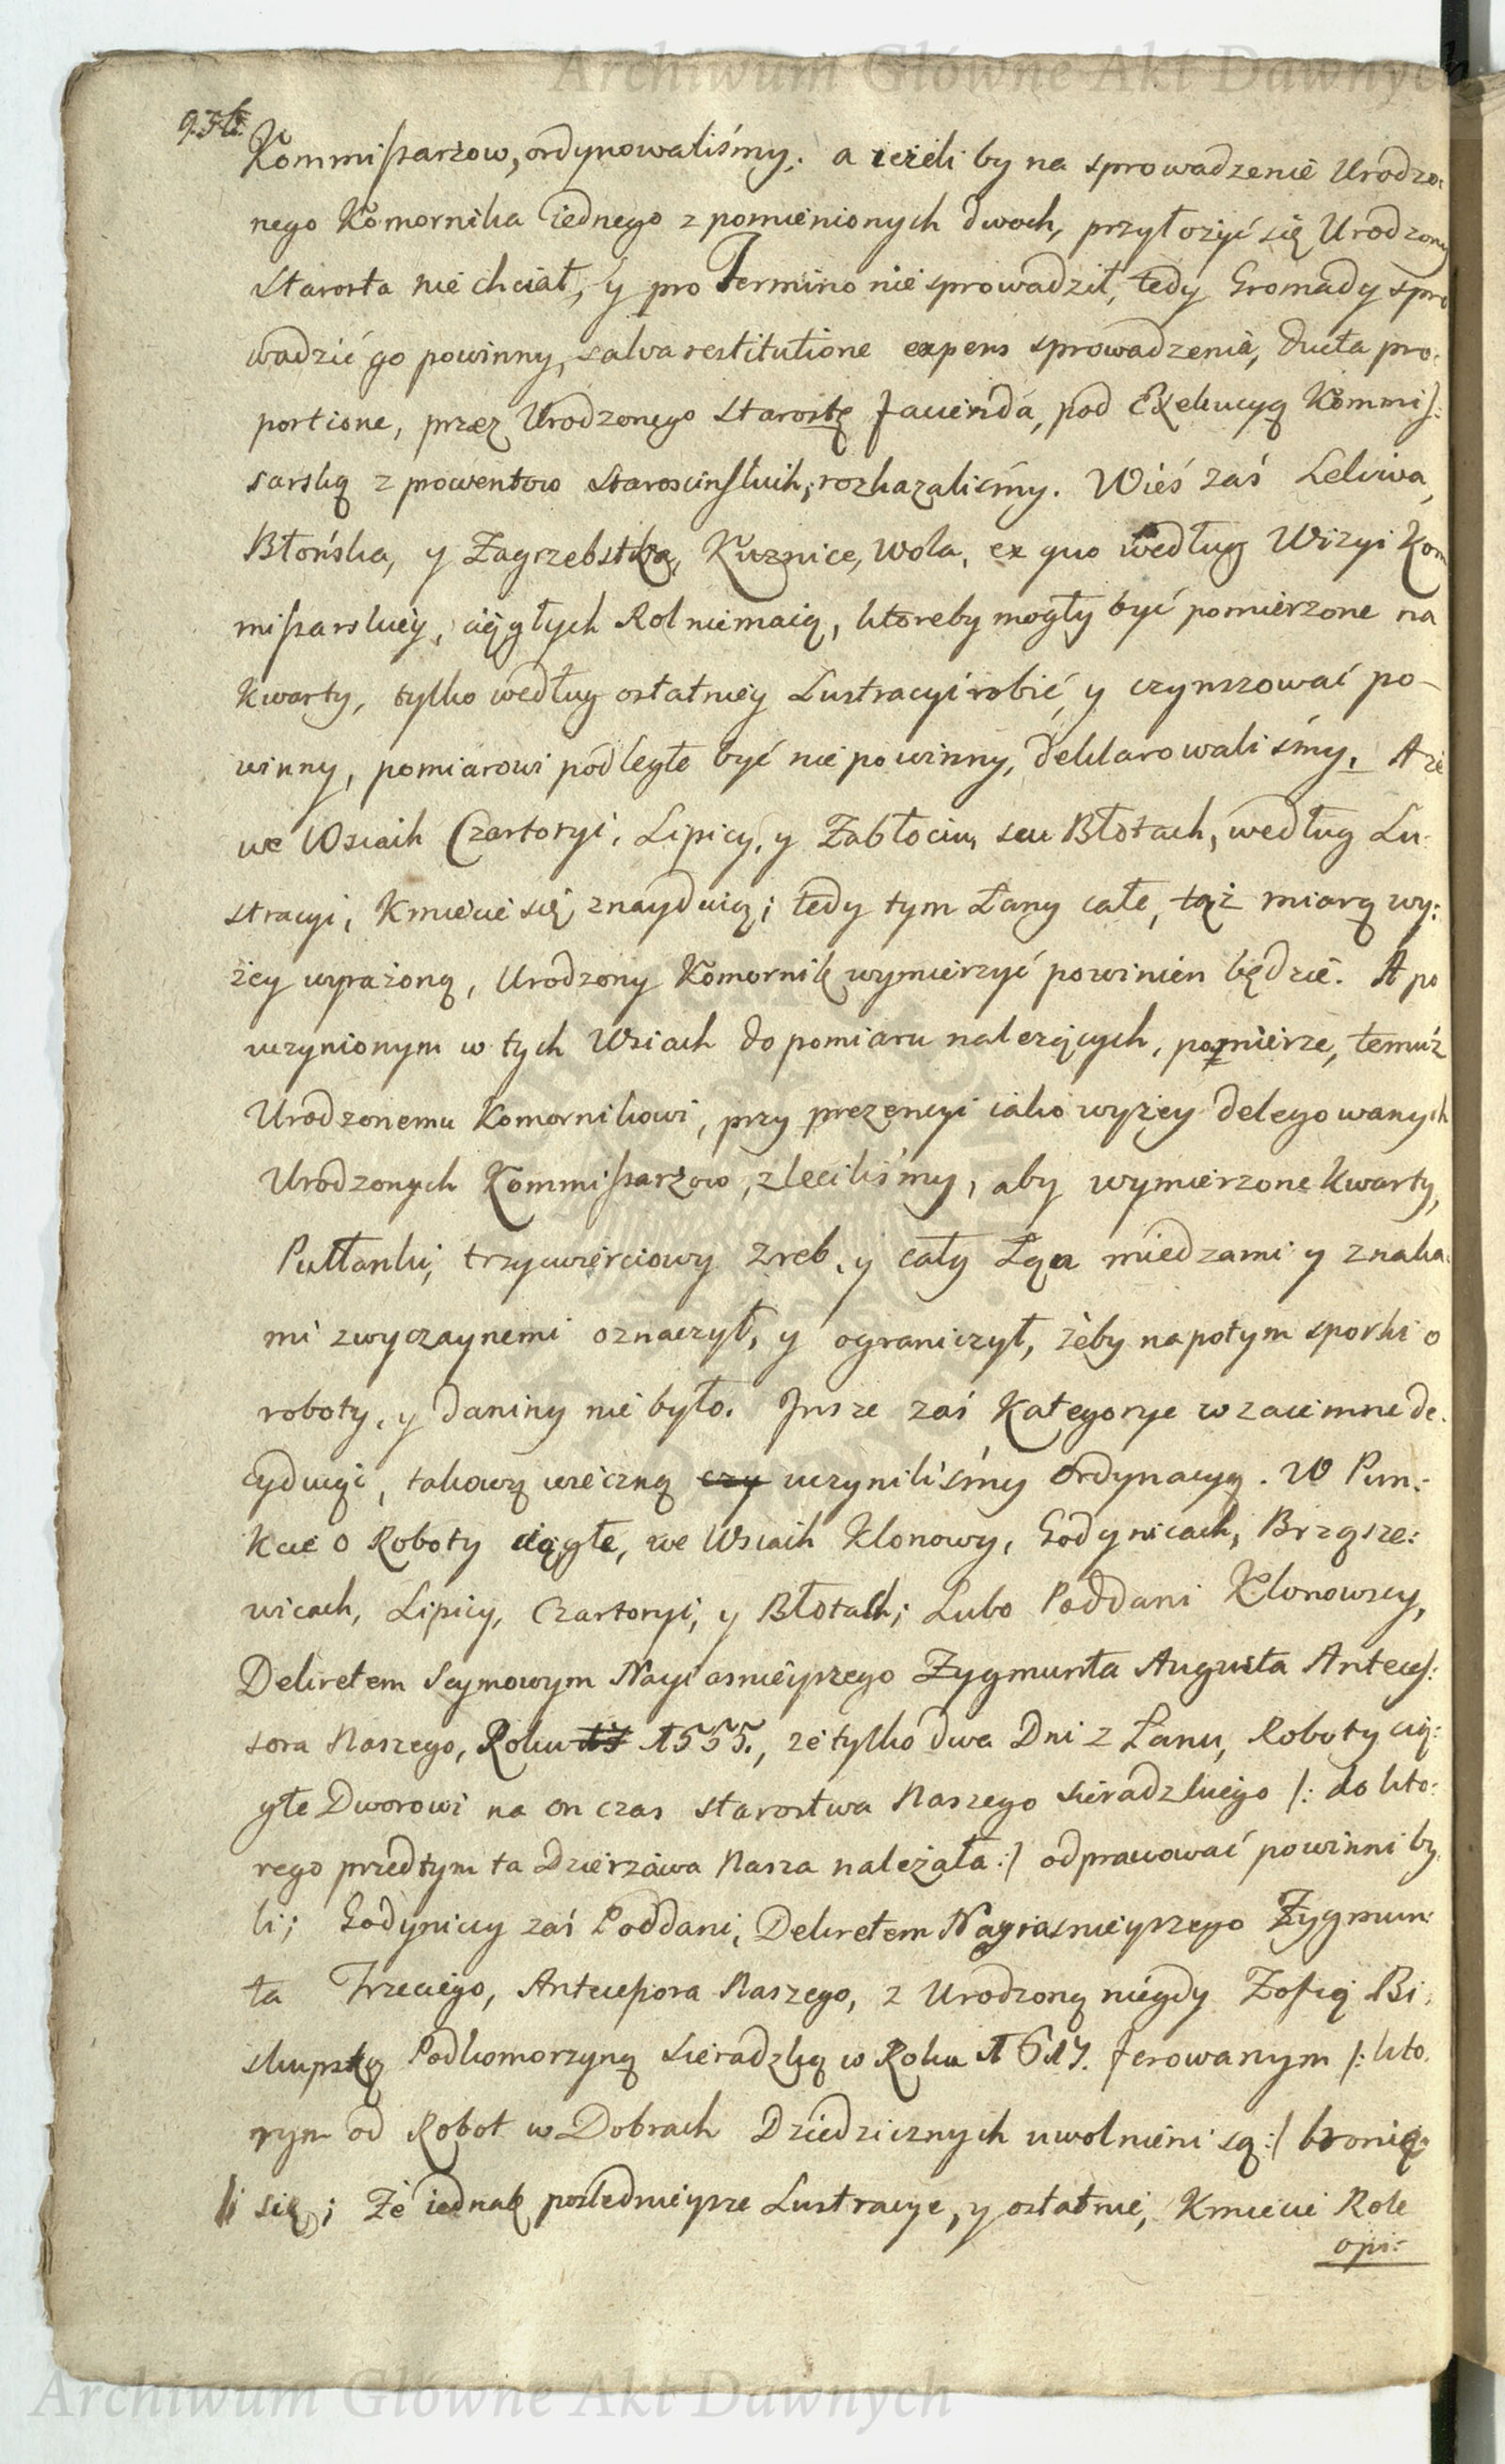 Archiwum Główne Akt Dawnych
Kommissarzow, ordynowaliśmy; a ieżeli by na sprowadzenie Urodzo:
nego Komornika iednego z pomienionych dwoch, przyłożyć się Urodzony
Starosta nie chciał, y pro Termino nie sprowadził, tedy Gromady spro
wadzić go powinny, salva restitutione expens sprowadzenia, ducta pro:
portione, przez Urodzonego Starostę facienda, pod Exekucyą Kommis:
sarską z prowentow Starościńskich, rozkazaliśmy. Wieś zaś Leliwa,
Błońska, y Zagrzebska, Kuznice, Wola, ex quo według Wizyi Kom
missarskiey, ciągłych Rol nie maią, ktoreby mogły być pomierzone na
Kwarty, tylko według ostatniey Lustracyi robić, y czynszować po-
winny, pomiarowi podległe być nie powinny, deklarowaliśmy. A że
we Wsiach Czartoryi, Lipicy, y Zabłociu, seu Błotach, według Lu-
stracyi, Kmiecie się znayduią; tedy tym Łany całe, tąż miarą wy:
żey wyrażoną, Urodzony Komornik wymierzyć powinien będzie. A po
uczynionym w tych Wsiach do pomiaru należących, pomierze, temuż
Urodzonemu Komornikowi, przy prezencyi iako wyżey delegowanych
Urodzonych Kommissarzow, zleciliśmy, aby wymierzone Kwarty,
Pułłanki, trzycwierciowy zreb, y cały Łan miedzami y znaka:
mi zwyczaynemi oznaczył, y ograniczył, żeby napotym sporki o
roboty, y daniny nie było. Insze zaś Kategorye wzaiemne de:
cyduiąc, takową wieczną czy uczyniliśmy Ordynacyą. W Pun:
kcie o Roboty ciągłe, we Wsiach Klonowy, Godynicach, Brząsze:
wicach, Lipicy, Czartoryi, y Błotach; Lubo Poddani Klonowscy,
Dekretem Seymowym Nayiasnieyszego Zygmunta Augusta Anteces:
sora Naszego, Roku 15 1555., że tylko dwa Dni z Łanu, Roboty cią:
głe Dworowi na on czas Starostwa Naszego Sieradzkiego /: do kto:
rego przedtym ta Dzierżawa Nasza należała :/ odprawować powinni by:
li; Godyniccy zaś Poddani, Dekretem Nayiasnieyszego Zygmun:
ta Trzeciego, Antecessora Naszego, z Urodzoną niegdy Zofią Bi:
skupską Podkomorzyną Sieradzką w Roku 1617. ferowanym /: kto:
rym od Robot w Dobrach Dziedzicznych uwolnieni są :/ bronią:
li się; Że iednak poslednieysze Lustracye, y ostatnie, Kmiecie Role
opi:
Archiwum Główne Akt Dawnych